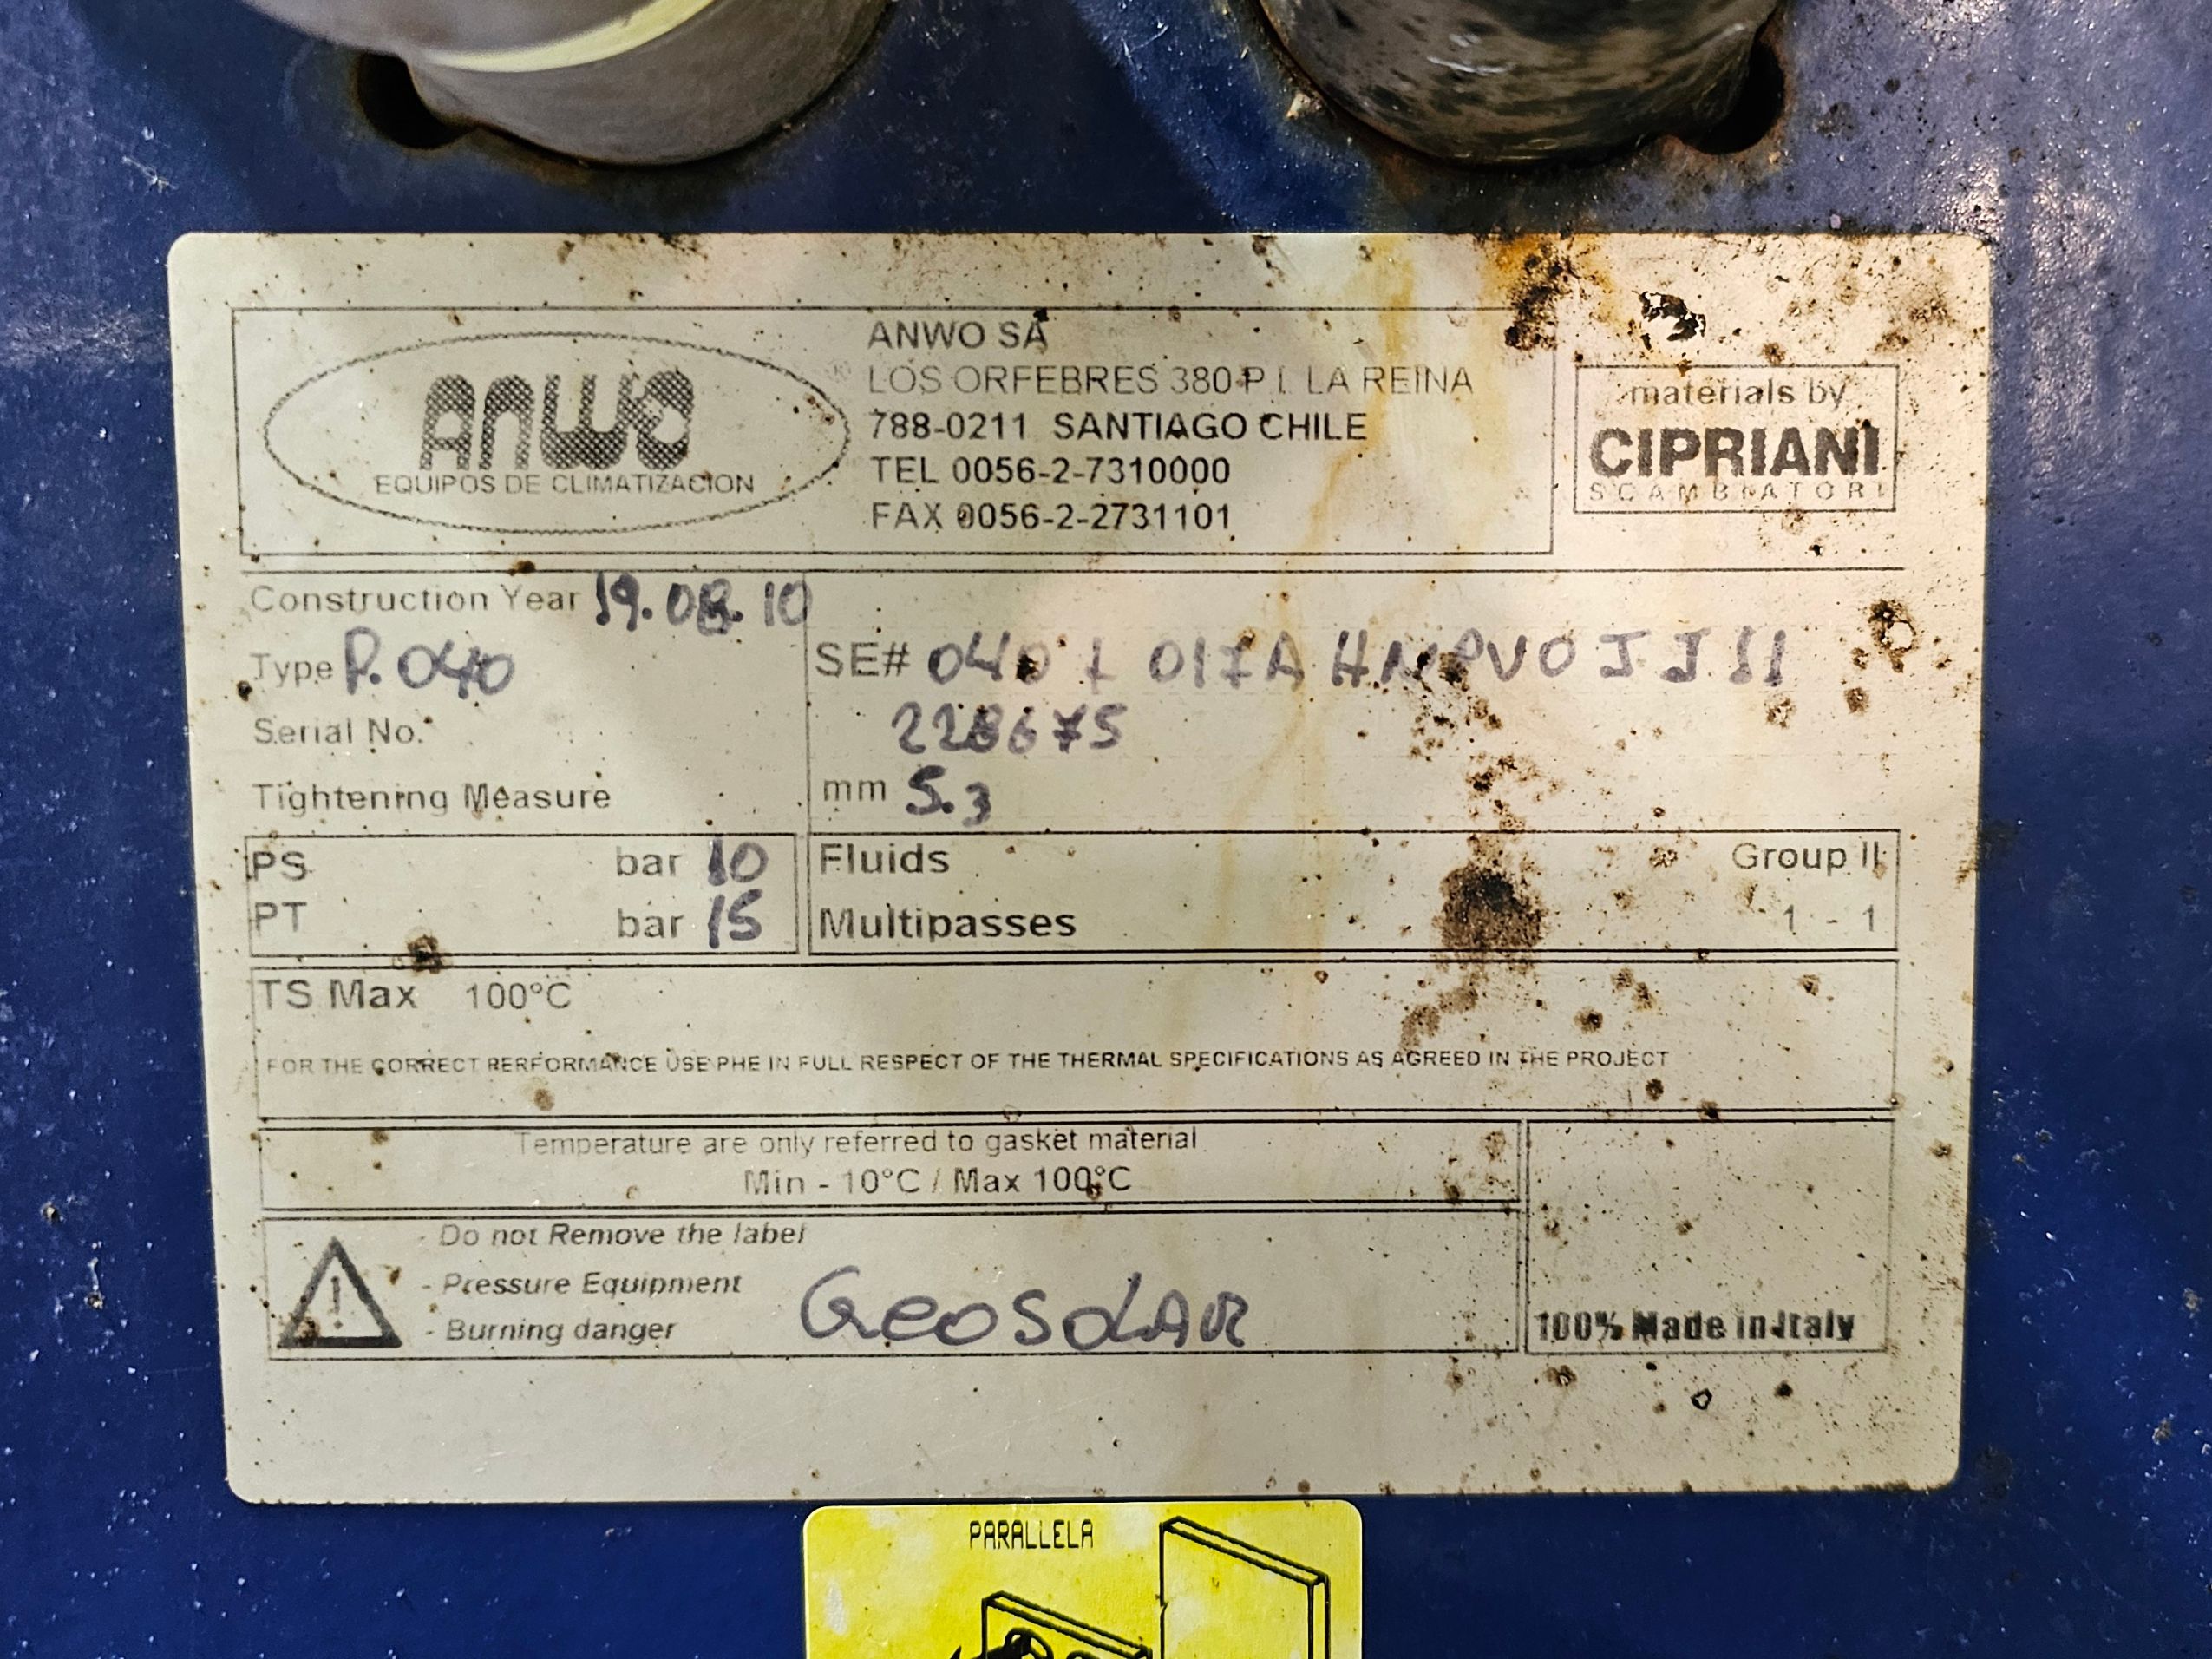 ANWO
EQUIPOS DE CLIMATIZACION
ANWO SA
LOS ORFEBRES 380 P.I. LA REINA
788-0211 SANTIAGO CHILE
TEL 0056-2-7310000
FAX 0056-2-2731101
materials by
CIPRIANI
SCAMBIATORI
Construction Year 19.08.10
Type P.040
SE# 040
Serial No. 228675
Tightening Measure mm 5.3
PS bar 10
PT bar 15
Fluids Group II
Multipasses 1 - 1
TS Max 100°C
FOR THE CORRECT PERFORMANCE USE PHE IN FULL RESPECT OF THE THERMAL SPECIFICATIONS AS AGREED IN THE PROJECT
Temperature are only referred to gasket material
Min - 10°C / Max 100°C
- Do not Remove the label
- Pressure Equipment
- Burning danger
GeoSoLAR
100% Made in Italy
PARALLELA